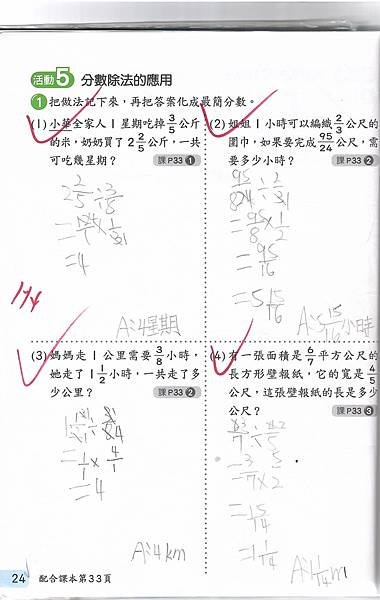 活動5 分數除法的應用
1 把做法記下來，再把答案化成最簡分數。
(1) 小華全家人1星期吃掉3/5公斤
的米，奶奶買了2 2/5公斤，一共
可吃幾星期？
課P33 1
=4
A:4星期
(2) 姐姐1小時可以編織2/3公尺的
圍巾，如果要完成95/24公尺，需
要多少小時？
課P33 2
=95/8×1/2
=95/16
=5 15/16
A:5 15/16小時
(3) 媽媽走1公里需要3/8小時，
她走了1 1/2小時，一共走了多
少公里？
課P33 2
=1/1×4/1
=4
A:4km
(4) 有一張面積是6/7平方公尺的
長方形壁報紙，它的寬是4/5
公尺，這張壁報紙的長是多少
公尺？
課P33 3
=3/7×5/2
=15/14
=1 1/14
A:1 1/14m
24 配合課本第33頁